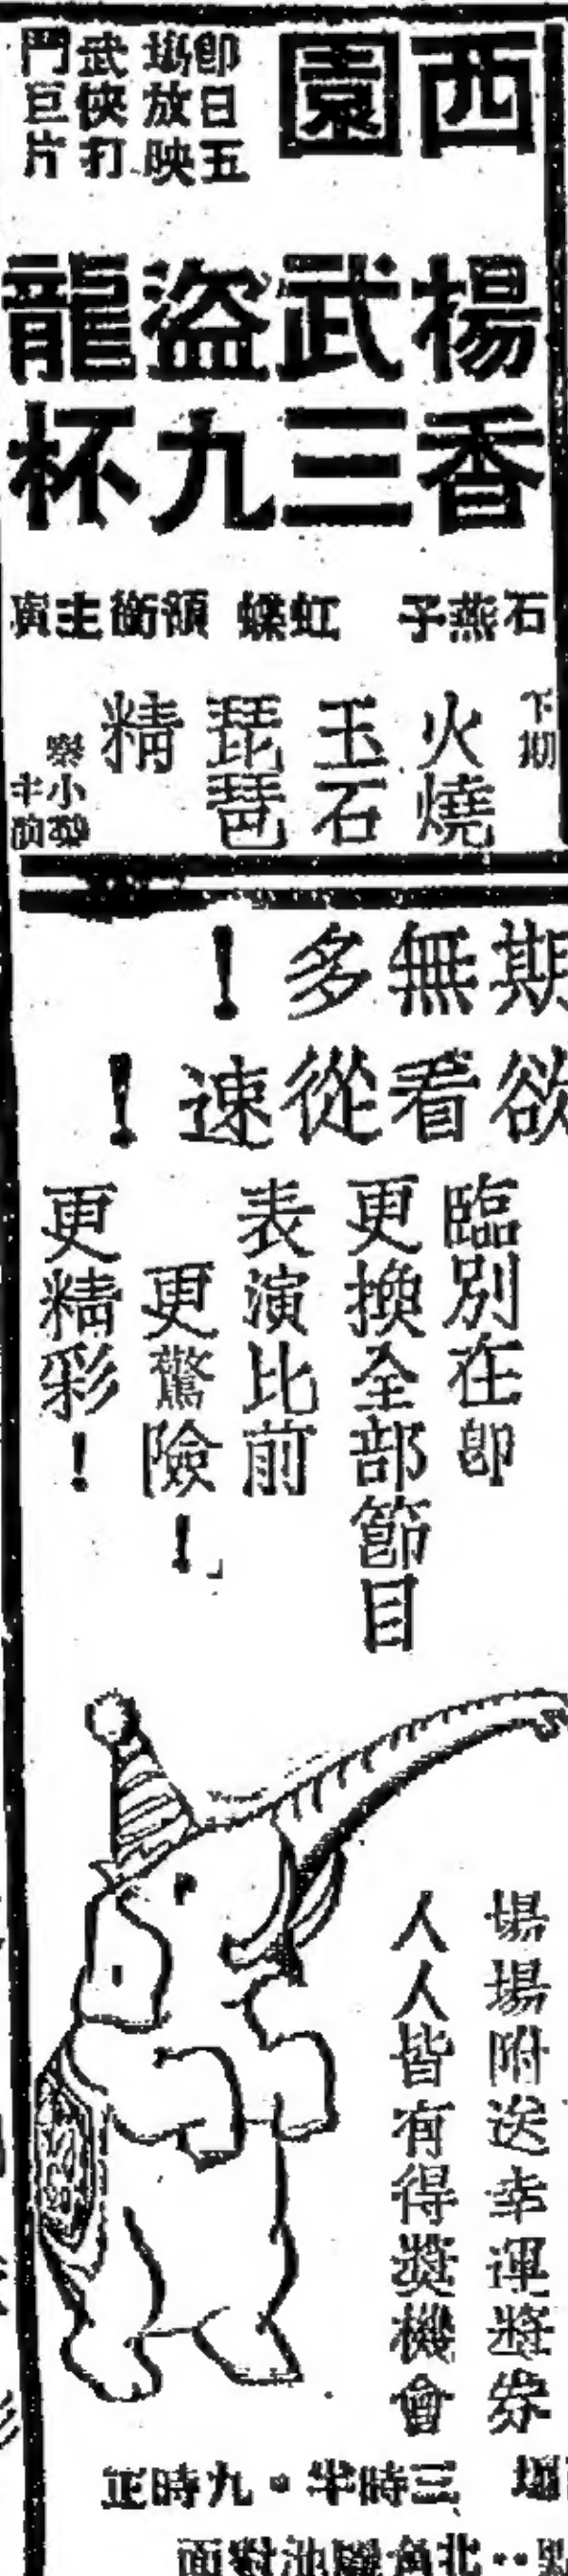 西園
即日五
場放映
武俠打
鬥巨片
楊香武三盜九龍杯
石燕子 虹蝶 領銜主演
下期
火燒
玉石
琵琶
精
期無多！
欲看從速！
臨別在即
更換全部節目
表演比前
更驚險！
更精彩！
場場附送幸運獎券
人人皆有得獎機會
三時半・九時正